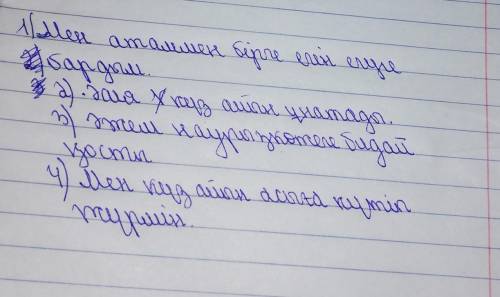 1) Мен атаммен бірге егін егуге
бардым.
2) Әпа күз айын ұнатады.
3) Әжем наурызкөжеге бидай
қосты
4) Мен күз айын асыға күтіп
жүрмін.